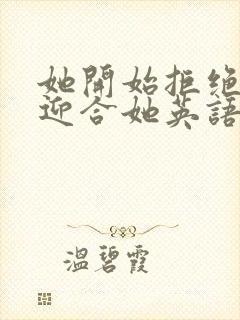 她開始拒绝
迎合她英語
溫碧霞